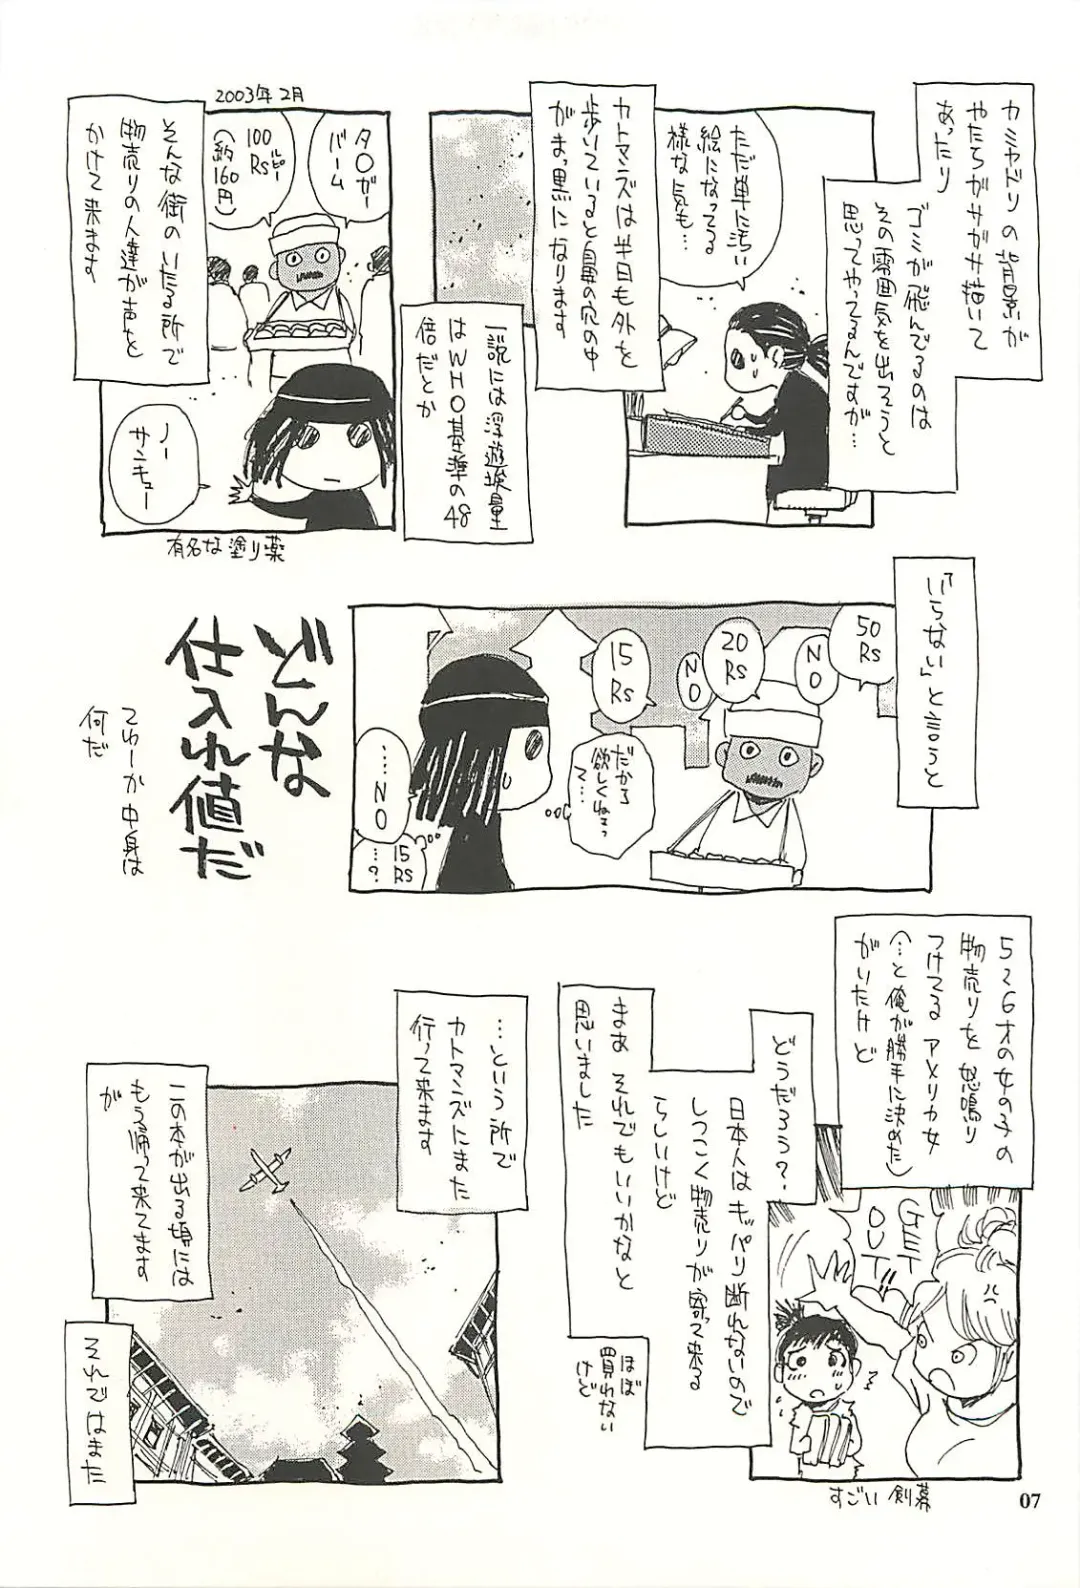 カミヤドリの背景が
やたらガサガサ描いて
あったり
ゴミが飛んでるのは
その雰囲気を出そうと
思ってやってるんですが…
ただ単に汚い
絵になってる
様な気も…
カトマンズは半日も外を
歩いていると鼻の穴の中
がまっ黒になります
一説には浮遊埃量
はWHO基準の48
倍だとか
2003年2月
そんな街のいたる所で
物売りの人達が声を
かけて来ます
タ〇ガー
バーム
100
Rsルピー
(約160円)
ノー
サンキュー
有名な塗り薬
「いらない」と言うと
50
Rs
NO
20
Rs
NO
15
Rs
だから
欲しくねぇっ
て…
…NO
15
Rs
…?
どんな
仕入れ値だ
てゆーか中身は
何だ
5〜6才の女の子の
物売りを怒鳴り
つけてるアメリカ女
(…と俺が勝手に決めた)
がいたけど
GET
OUT
すごい剣幕
どうだろう?
日本人はキッパリ断れないので
しつこく物売りが寄って来る
らしいけど
まぁそれでもいいかなと
思いました
ほぼ
買わない
けど
…という所で
カトマンズにまた
行って来ます
この本が出る頃には
もう帰って来てます
が
それではまた
07